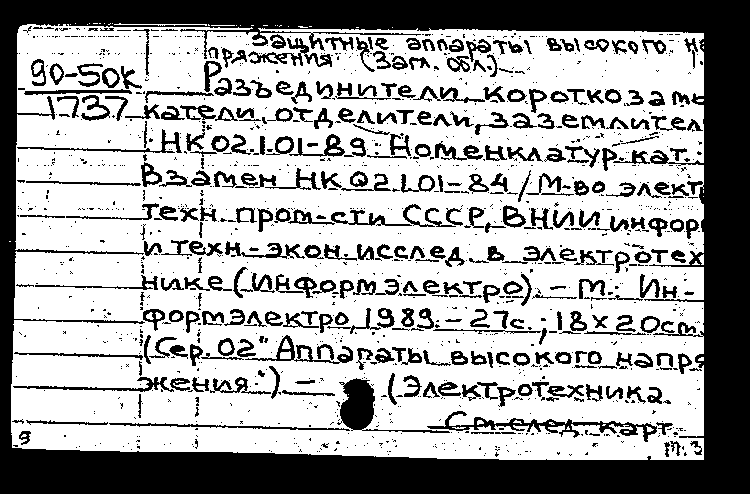 Защитные аппараты высокого на
пряжения (Загл. обл.)
90-50к
1737
Разъединители, короткозамы
катели, отделители, заземлител
НК 02.1.01-89: Номенклатур. кат.:
Взамен НК 02.1.01-84 / М-во электр
техн. пром-сти СССР, ВНИИ информ
и техн.-экон. исслед. в электротех
нике (Информэлектро). - М.: Ин-
формэлектро, 1989. - 27с.; 18х20см.
(Сер. 02 "Аппараты высокого напря
жения") - (Электротехника.
См. след. карт.
9